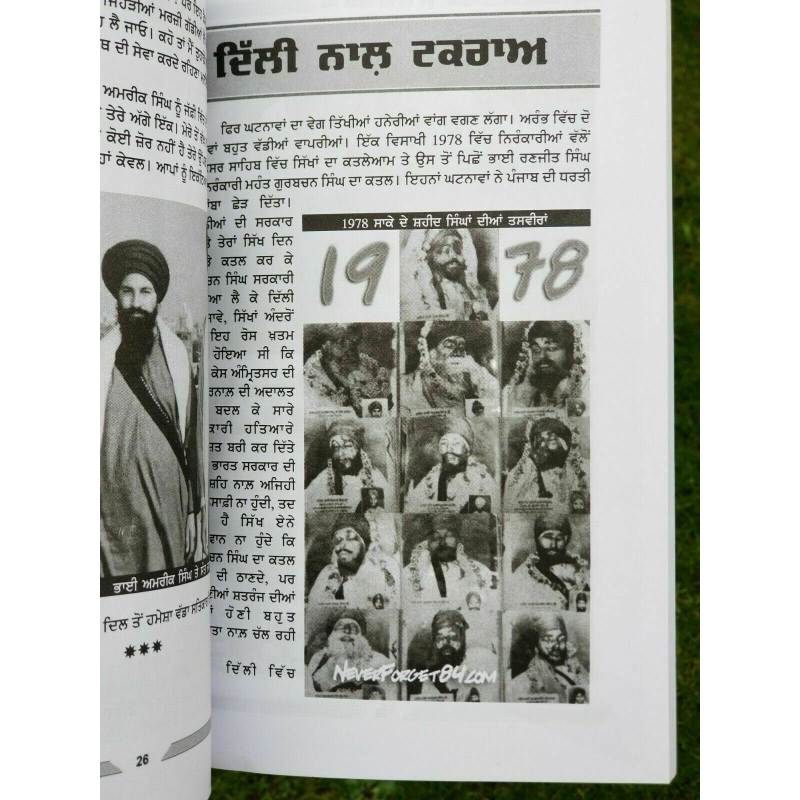 ਜਿਹੜੀਆਂ ਮਰਜ਼ੀ ਗੱਡੀਆਂ
ਲੈ ਜਾਓ। ਕਹੋ ਤਾਂ ਮੈਂ
ਦੀ ਸੇਵਾ ਕਰਦੇ ਰਹਿਣਾ
ਅਮਰੀਕ ਸਿੰਘ ਨੂੰ ਜੱਫ਼ੀ
ਤੇਰੇ ਅੱਗੇ ਇੱਕ। ਮੇਰੇ ਤੋਂ
ਕੋਈ ਜ਼ੋਰ ਨਹੀਂ ਹੈ ਤੇਰੇ
ਕੇਵਲ। ਆਪਾਂ ਨੂੰ
ਭਾਈ ਅਮਰੀਕ ਸਿੰਘ ਤੇ
ਦਿਲ ਤੋਂ ਹਮੇਸ਼ਾ ਵੱਡਾ
***
26
ਦਿੱਲੀ ਨਾਲ਼ ਟਕਰਾਅ
ਫਿਰ ਘਟਨਾਵਾਂ ਦਾ ਵੇਗ ਤਿੱਖੀਆਂ ਹਨੇਰੀਆਂ ਵਾਂਗ ਵਗਣ ਲੱਗਾ। ਅਰੰਭ ਵਿੱਚ ਦੋ
ਬਹੁਤ ਵੱਡੀਆਂ ਵਾਪਰੀਆਂ। ਇੱਕ ਵਿਸਾਖੀ 1978 ਵਿੱਚ ਨਿਰੰਕਾਰੀਆਂ ਵੱਲੋਂ
ਸਾਹਿਬ ਵਿੱਚ ਸਿੱਖਾਂ ਦਾ ਕਤਲੇਆਮ ਤੇ ਉਸ ਤੋਂ ਪਿਛੋਂ ਭਾਈ ਰਣਜੀਤ ਸਿੰਘ
ਮਹੰਤ ਗੁਰਬਚਨ ਸਿੰਘ ਦਾ ਕਤਲ। ਇਹਨਾਂ ਘਟਨਾਵਾਂ ਨੇ ਪੰਜਾਬ ਦੀ ਧਰਤੀ
ਛੇੜ ਦਿੱਤਾ।
ਦੀ ਸਰਕਾਰ
ਤੇਰਾਂ ਸਿੱਖ ਦਿਨ
ਕਤਲ ਕਰ ਕੇ
ਸਿੰਘ ਸਰਕਾਰੀ
ਲੈ ਕੇ ਦਿੱਲੀ
ਸਿੱਖਾਂ ਅੰਦਰੋਂ
ਇਹ ਰੋਸ ਖ਼ਤਮ
ਹੋਇਆ ਸੀ ਕਿ
ਕੇਸ ਅੰਮ੍ਰਿਤਸਰ ਦੀ
ਦੀ ਅਦਾਲਤ
ਬਦਲ ਕੇ ਸਾਰੇ
ਹਤਿਆਰੇ
ਬਰੀ ਕਰ ਦਿੱਤੇ
ਭਾਰਤ ਸਰਕਾਰ ਦੀ
ਸ਼ਹਿ ਨਾਲ਼ ਅਜਿਹੀ
ਨਾ ਹੁੰਦੀ, ਤਦ
ਹੈ ਸਿੱਖ ਏਨੇ
ਨਾ ਹੁੰਦੇ ਕਿ
ਸਿੰਘ ਦਾ ਕਤਲ
ਦੀ ਠਾਣਦੇ, ਪਰ
ਸ਼ਤਰੰਜ ਦੀਆਂ
ਹੋਣੀ ਬਹੁਤ
ਨਾਲ਼ ਚੱਲ ਰਹੀ
ਦਿੱਲੀ ਵਿੱਚ
1978 ਸਾਕੇ ਦੇ ਸ਼ਹੀਦ ਸਿੰਘਾਂ ਦੀਆਂ ਤਸਵੀਰਾਂ
19 78
NEVERFORGET84.COM